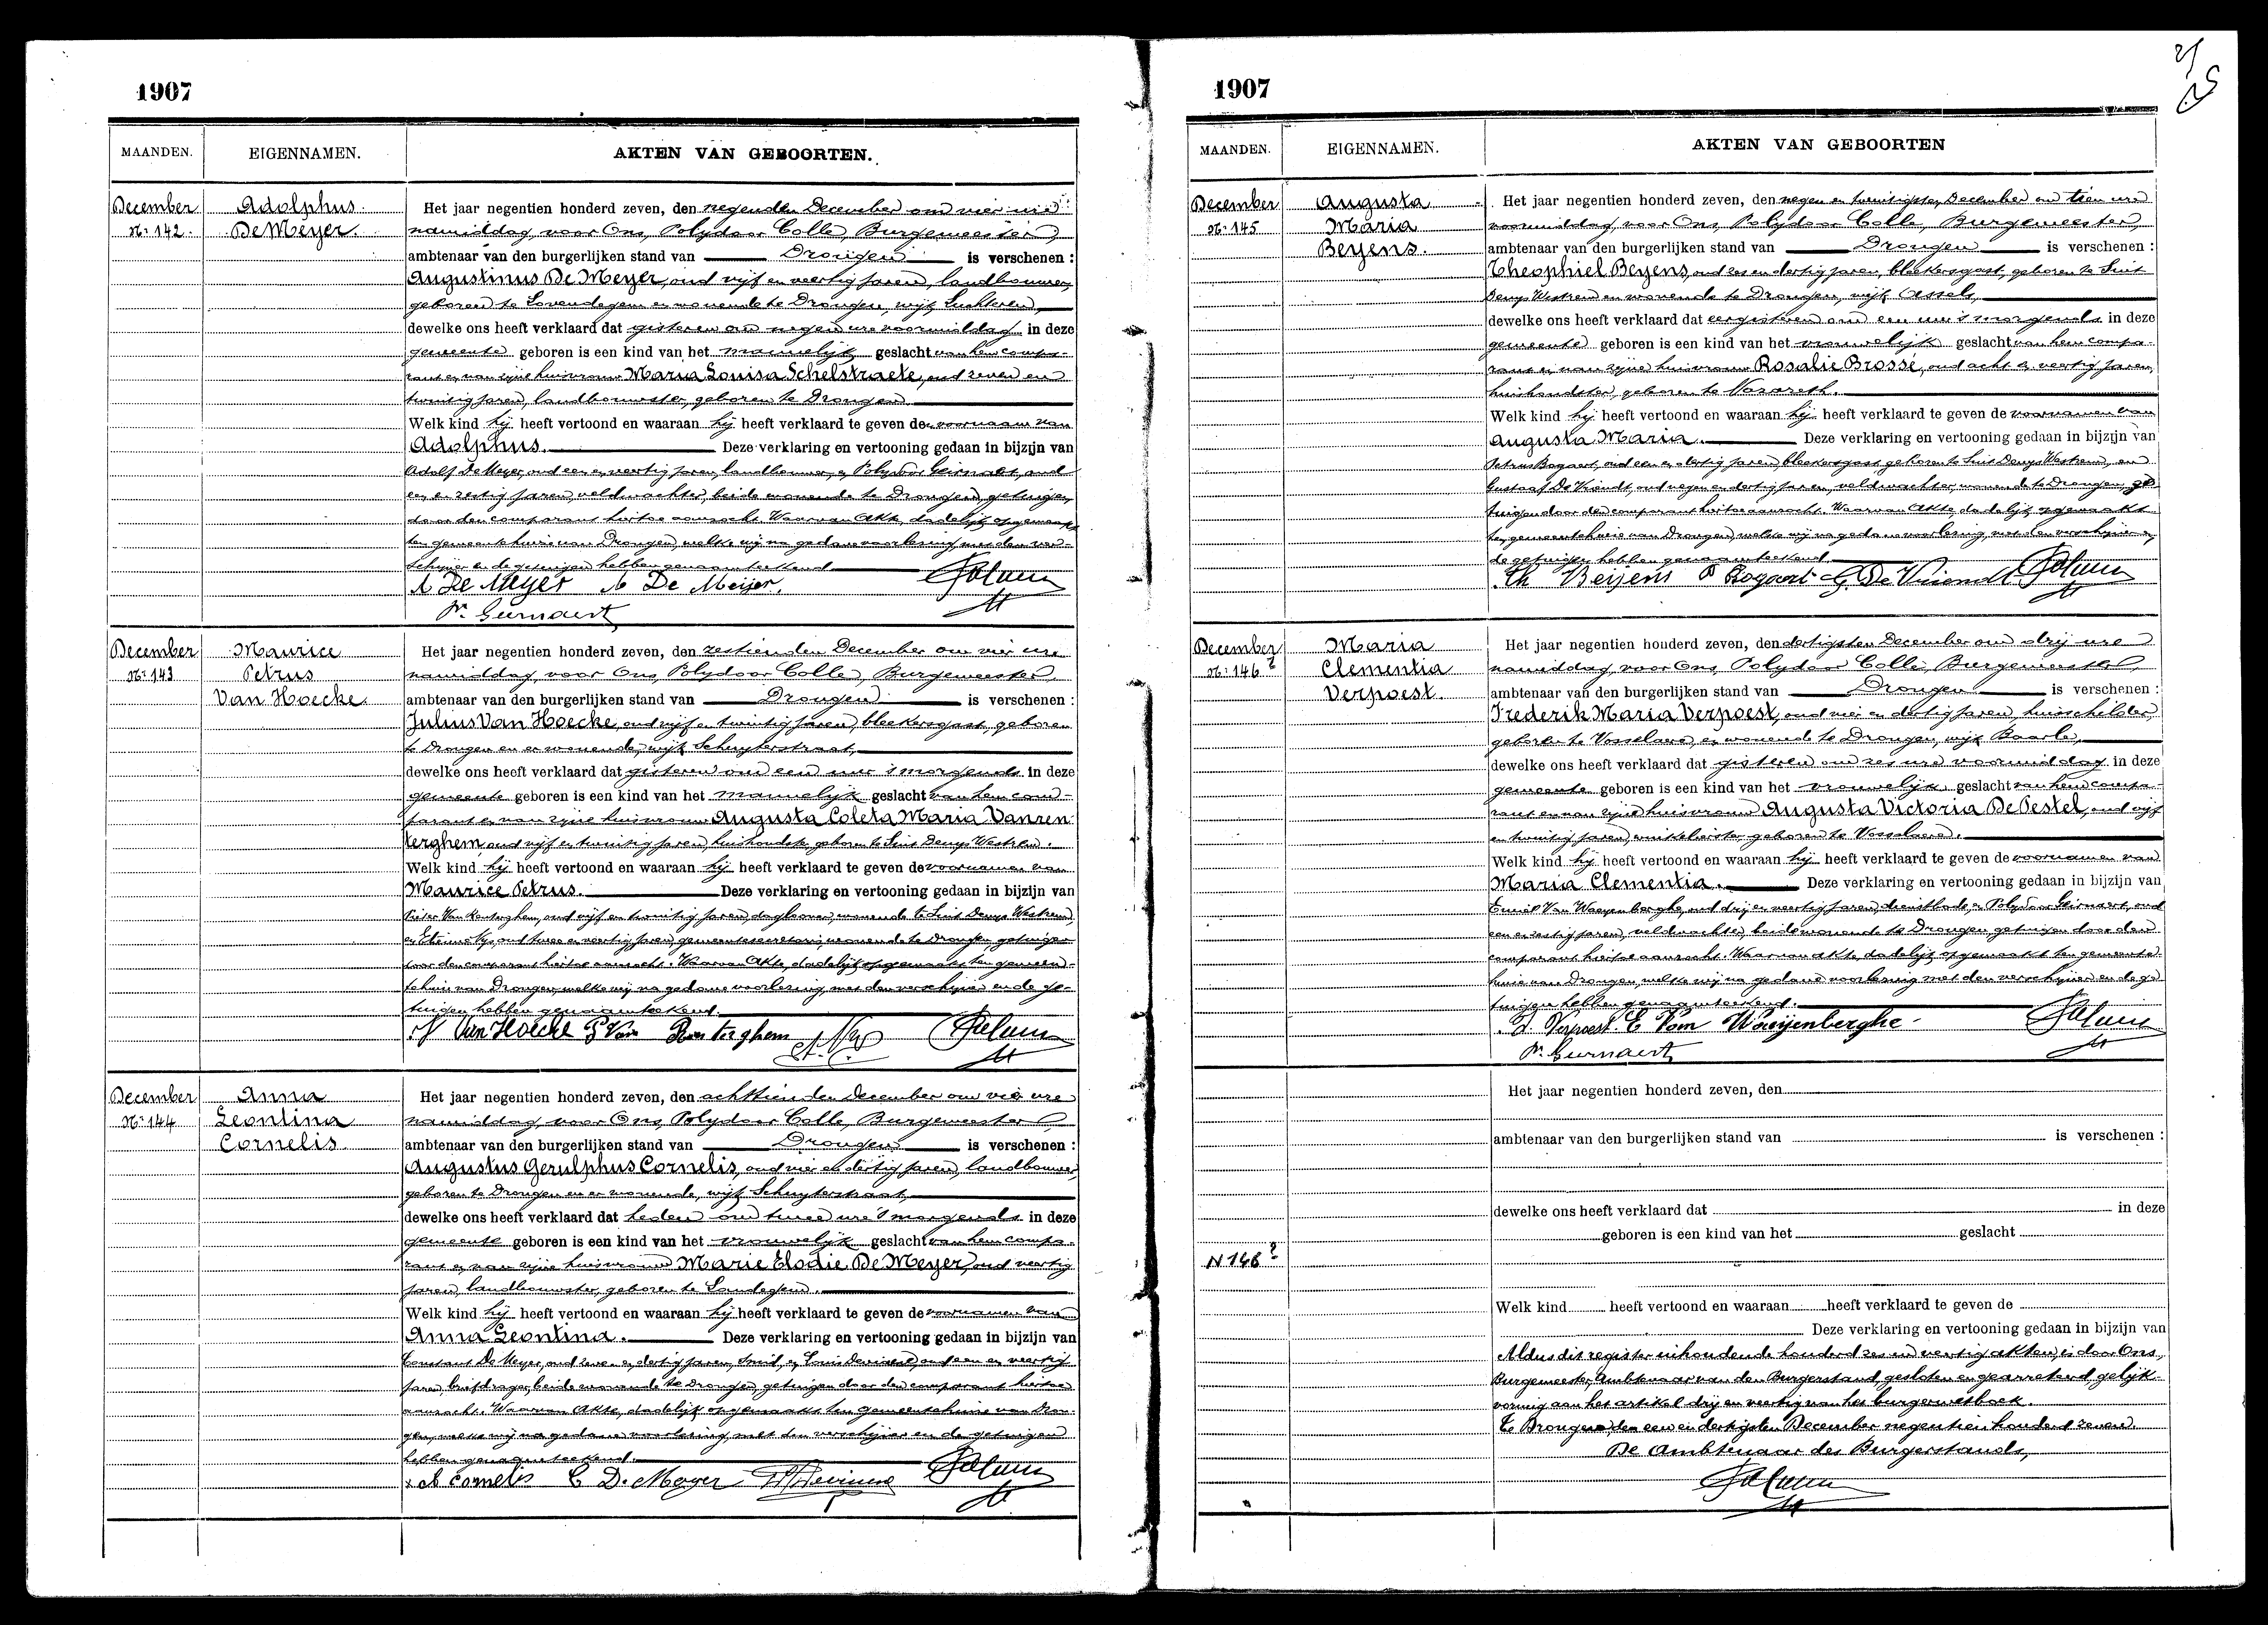 1907
MAANDEN.
EIGENNAMEN.
AKTEN VAN GEBOORTEN.
December
N.º 142.
Adolphus
De Meyer.
Het jaar negentien honderd zeven, den negenden December om vier ure
namiddag, voor Ons, Polydoor Colle, Burgemeester,
ambtenaar van den burgerlijken stand van Drongen is verschenen :
Augustinus De Meyer, oud vijf en veertig jaren, landbouwer,
geboren te Lovendegem en wonende te Drongen, wijk Luchteren,
dewelke ons heeft verklaard dat gisteren om negen ure voormiddag in deze
gemeente geboren is een kind van het mannelijk geslacht van hem compa-
rant en van zijne huisvrouw Maria Louisa Schelstraete, oud zeven en
twintig jaren, landbouwster, geboren te Drongen.
Welk kind hij heeft vertoond en waaraan hij heeft verklaard te geven de voornaam van
Adolphus. Deze verklaring en vertooning gedaan in bijzijn van
Adolf De Meyer, oud een en veertig jaren, landbouwer, en Polydoor Geirnaert, oud
een en zestig jaren, veldwachter, beide wonende te Drongen, getuigen
door den comparant hiertoe aanzocht. Waarvan Akte, dadelijk opgemaakt
ten gemeentehuize van Drongen, welke wij na gedane voorlezing met den ver-
schijner en de getuigen hebben genaamteekend.
A De Meyer A De Meijer.
P. Geirnaert
December
N.º 143
Maurice
Petrus
Van Hoecke.
Het jaar negentien honderd zeven, den zestienden December om vier ure
namiddag, voor Ons, Polydoor Colle, Burgemeester,
ambtenaar van den burgerlijken stand van Drongen is verschenen :
Julius Van Hoecke, oud vijf en twintig jaren, bleekersgast, geboren
te Drongen en er wonende, wijk Schuyterstraat,
dewelke ons heeft verklaard dat gisteren om een ure 's morgends in deze
gemeente geboren is een kind van het mannelijk geslacht van hem com-
parant en van zijne huisvrouw Augusta Coleta Maria Vanren
terghem, oud vijf en twintig jaren, huishoudster, geboren te Sint Denys Westrem.
Welk kind hij heeft vertoond en waaraan hij heeft verklaard te geven de voornamen van
Maurice Petrus. Deze verklaring en vertooning gedaan in bijzijn van
Pieter Van Renterghem, oud vijf en twintig jaren, daglooner, wonende te Sint Denys Westrem,
en Etienne Nys, oud twee en veertig jaren, gemeentesecretaris, wonende te Drongen, getuigen
door den comparant hiertoe aanzocht. Waarvan Akte, dadelijk opgemaakt ten gemeen-
tehuize van Drongen, welke wij na gedane voorlezing, met den verschijner en de ge-
tuigen hebben genaamteekend.
Van Hoecke P Van Renterghem
December
N.º 144
Anna
Leontina
Cornelis.
Het jaar negentien honderd zeven, den achttienden December om vier ure
namiddag, voor Ons, Polydoor Colle, Burgemeester
ambtenaar van den burgerlijken stand van Drongen is verschenen :
Augustus Gerulphus Cornelis, oud vier en dertig jaren, landbouwer,
geboren te Drongen en er wonende, wijk Schuyterstraat,
dewelke ons heeft verklaard dat heden om twee ure 's morgends in deze
gemeente geboren is een kind van het vrouwelijk geslacht van hem compa-
rant en van zijne huisvrouw Marie Elodie De Meyer, oud veertig
jaren, landbouwster, geboren te Landegem.
Welk kind hij heeft vertoond en waaraan hij heeft verklaard te geven de voornamen van
Anna Leontina. Deze verklaring en vertooning gedaan in bijzijn van
Constant De Meyer, oud zeven en dertig jaren, smid, en Louis oud een en veertig
jaren, briefdrager, beide wonende te Drongen, getuigen door den comparant hiertoe
aanzocht. Waarvan Akte, dadelijk opgemaakt ten gemeentehuize van Dron-
gen, welke wij na gedane voorlezing, met den verschijner en de getuigen
hebben genaamteekend.
A Cornelis C De Meyer
1907
MAANDEN.
EIGENNAMEN.
AKTEN VAN GEBOORTEN
December
N.º 145
Augusta
Maria
Beyens.
Het jaar negentien honderd zeven, den negen en twintigsten December om tien ure
voormiddag, voor Ons, Polydoor Colle, Burgemeester,
ambtenaar van den burgerlijken stand van Drongen is verschenen :
Theophiel Beyens, oud zes en dertig jaren, bleekersgast, geboren te Sint
Denys Westrem en wonende te Drongen, wijk Assels,
dewelke ons heeft verklaard dat eergisteren om een ure 's morgends in deze
gemeente geboren is een kind van het vrouwelijk geslacht van hem compa-
rant en van zijne huisvrouw Rosalie Brossé, oud acht en veertig jaren,
huishoudster, geboren te Nazareth.
Welk kind hij heeft vertoond en waaraan hij heeft verklaard te geven de voornamen van
Augusta Maria. Deze verklaring en vertooning gedaan in bijzijn van
Petrus Bogaert, oud een en dertig jaren, bleekersgast, geboren te Sint Denys Westrem, en
Gustaaf De Vriendt, oud negen en dertig jaren, veldwachter, wonende te Drongen, ge-
tuigen door den comparant hiertoe aanzocht. Waarvan Akte, dadelijk opgemaakt
ten gemeentehuize van Drongen, welke wij na gedane voorlezing, met den verschijner en
de getuigen hebben genaamteekend.
Th Beyens P Bogaert G. De Vriendt
December
N.º 146 ?
Maria
Clementia
Verpoest.
Het jaar negentien honderd zeven, den dertigsten December om drij ure
namiddag, voor Ons, Polydoor Colle, Burgemeester
ambtenaar van den burgerlijken stand van Drongen is verschenen :
Frederik Maria Verpoest, oud vier en dertig jaren, huisschilder,
geboren te Vosselare, en wonende te Drongen, wijk Baarle,
dewelke ons heeft verklaard dat gisteren om zes ure voormiddag in deze
gemeente geboren is een kind van het vrouwelijk geslacht van hem compa-
rant en van zijne huisvrouw Augusta Victoria De Pestel, oud vijf
en twintig jaren, geboren te Vosselare.
Welk kind hij heeft vertoond en waaraan hij heeft verklaard te geven de voornamen van
Maria Clementia. Deze verklaring en vertooning gedaan in bijzijn van
Emiel Van Waeyenberghe, oud drij en veertig jaren, dienstbode, en Polydoor Geirnaert, oud
een en zestig jaren, veldwachter, beide wonende te Drongen, getuigen door den
comparant hiertoe aanzocht. Waarvan akte, dadelijk opgemaakt ten gemeente-
huize van Drongen, welke wij na gedane voorlezing met den verschijner en de ge-
tuigen hebben genaamteekend.
F. Verpoest. E Van Waeijenberghe
P. Geirnaert
N 146 ?
Het jaar negentien honderd zeven, den
ambtenaar van den burgerlijken stand van is verschenen :
dewelke ons heeft verklaard dat in deze
geboren is een kind van het geslacht
Welk kind heeft vertoond en waaraan heeft verklaard te geven de
Deze verklaring en vertooning gedaan in bijzijn van
Aldus dit register inhoudende honderd zes en veertig akten, is door Ons,
Burgemeester, Ambtenaar van den Burgerstand, gesloten en gearreteerd, gelijk-
vormig aan het artikel drij en veertig van het burgerwetboek.
Te Drongen, den een en dertigsten December negentien honderd zeven.
De Ambtenaar des Burgerstands,